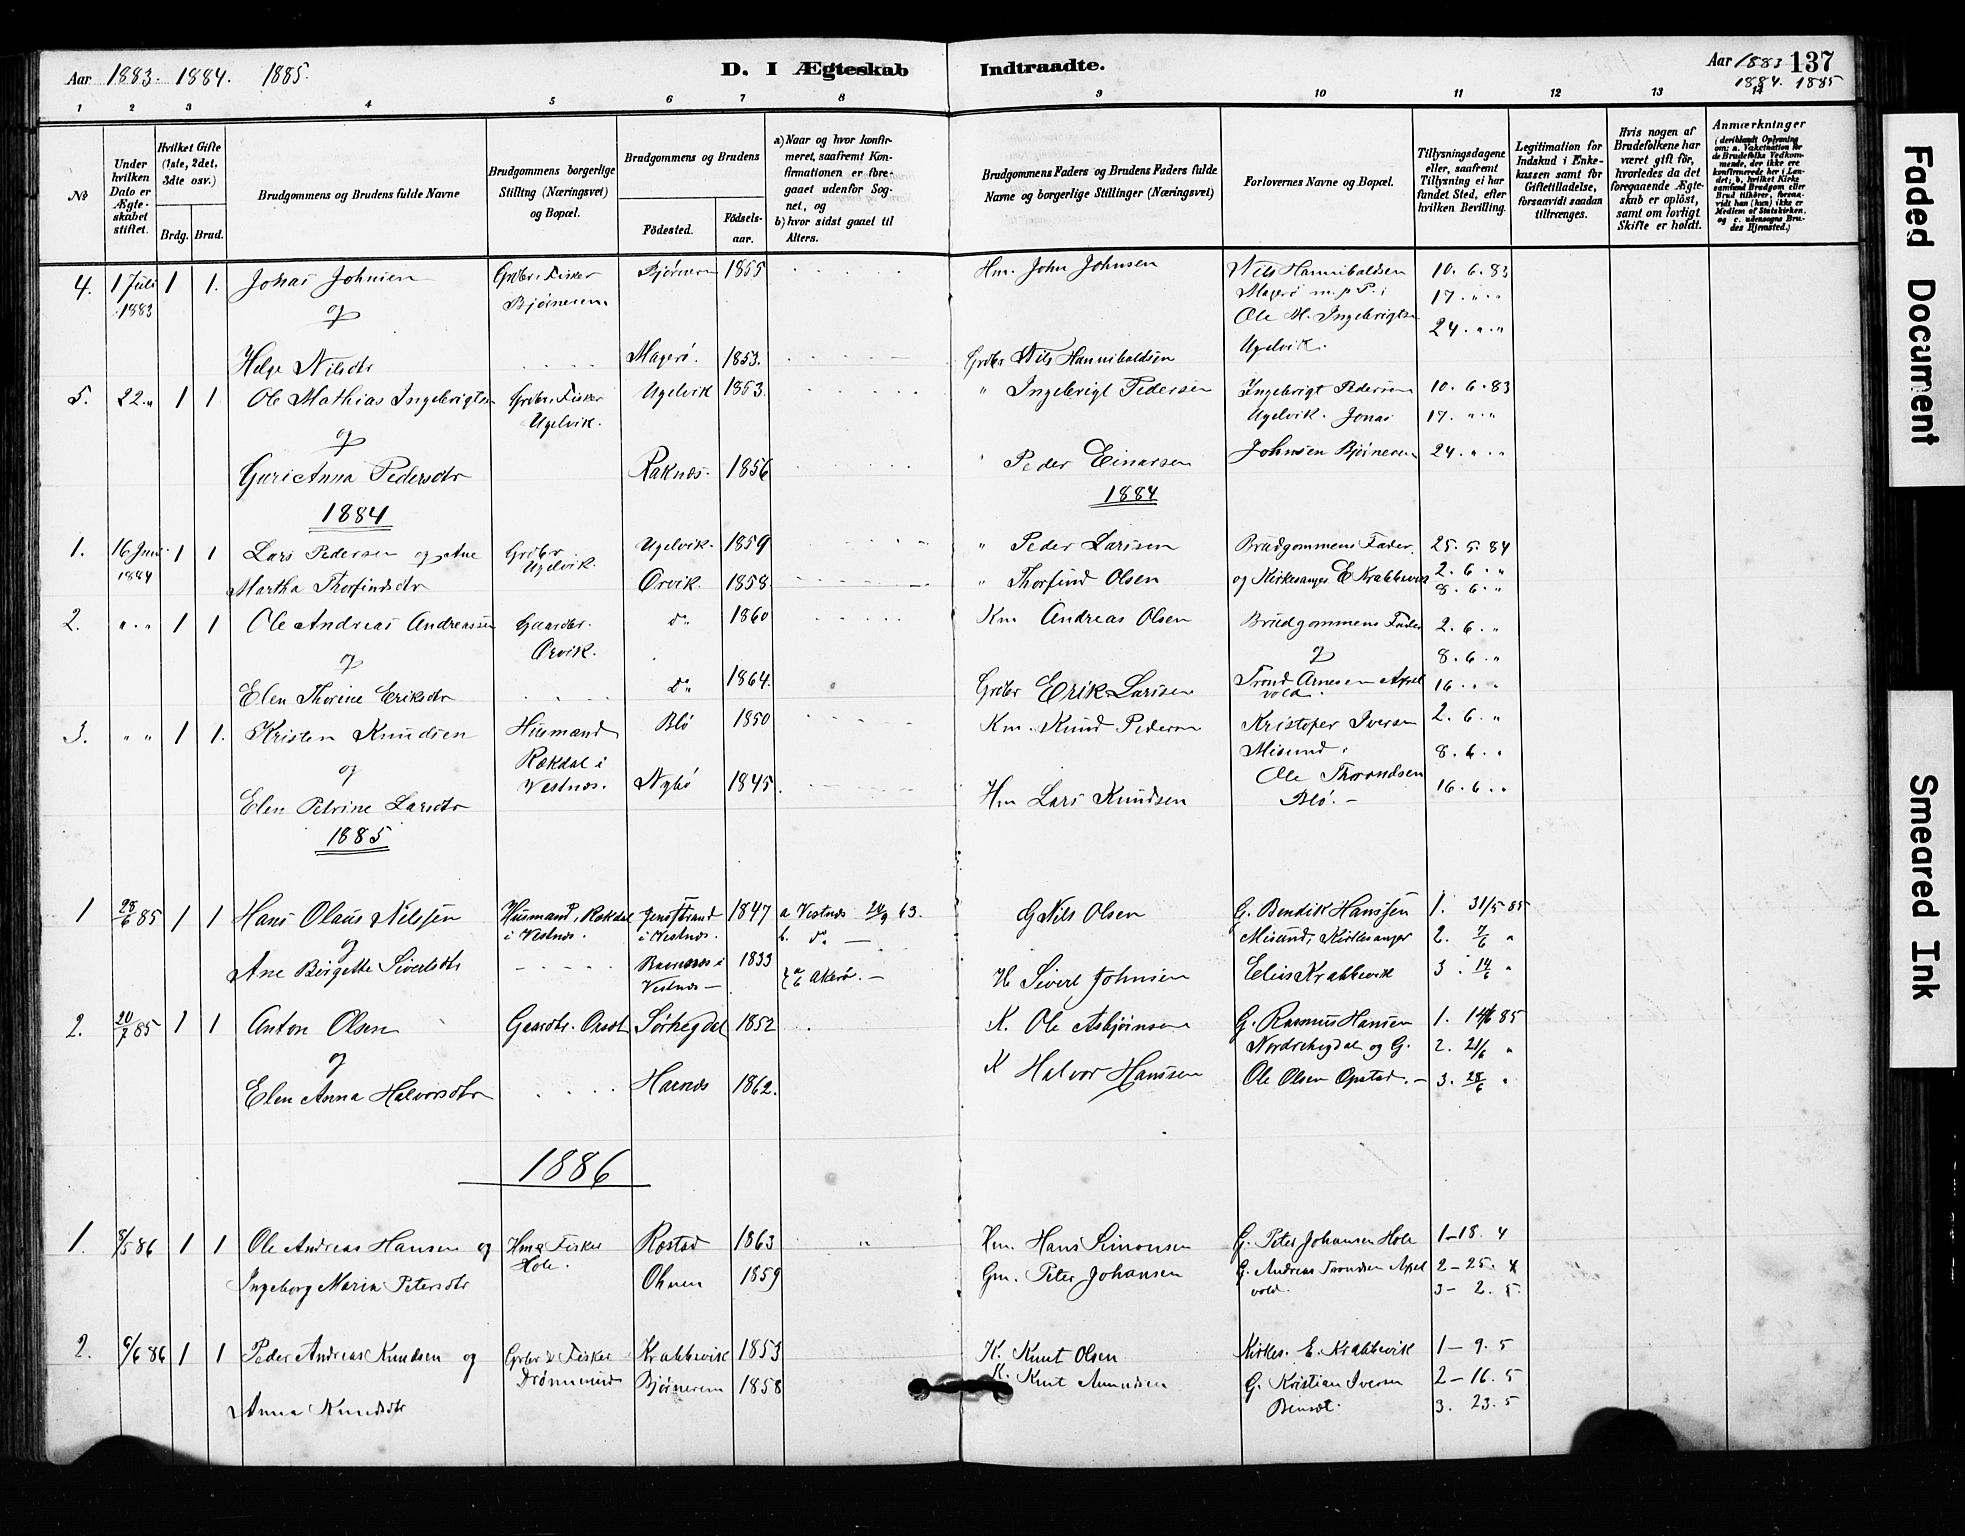 Aar 1883. 1884. 1885.
D. I Ægteskab Indtraadte.
Aar 1883 137
1884. 1885
1 2 3 4 5 6 7 8 9 10 11 12 13 14
No
Under hvilken Dato er Ægteskabet stiftet.
Hvilket Gifte (1ste, 2det, 3die osv.)
Brdg. Brud.
Brudgommens og Brudens fulde Navne
Brudgommens borgerlige Stilling (Næringsvei) og Bopæl.
Brudgommens og Brudens
Fødested. Fødselsaar.
a) Naar og hvor konfirmeret, saafremt Konfirmationen er foregaaet udenfor Sognet, og
b) hvor sidst gaaet til Alters.
Brudgommens Faders og Brudens Faders fulde Navne og borgerlige Stillinger (Næringsvei)
Forlovernes Navne og Bopæl.
Tillysningsdagene eller, saafremt Tillysning ei har fundet Sted, efter hvilken Bevilling.
Legitimation for Indskud i Enkekassen samt for Giftetilladelse, forsaavidt saadan tiltrænges.
Hvis nogen af Brudefolkene har været gift før, hvorledes da det foregaaende Ægteskab er opløst, samt om lovligt Skifte er holdt.
Anmærkninger
(deriblandt Oplysning om: a. Vakcination for de Brudefolks Vedkommende, der ikke ere konfirmerede her i Landet; b. hvilket Kirkesamfund Brudgom eller Brud tilhører, forsaavidt han (hun) ikke er Medlem af Statskirken, og c. udensogns Brudes Hjemsted.)
4. 1 Juli 1883 1 1. Jonas Johnsen Grdbr. Fisker Bjørnerem Bjørnerem 1855 Hm. John Johnsen Nils Hannibaldsen Magerø m. p. P.; 10. 6. 83
17. " "
og Ole M. Ingebrigtsen Ugelvik. 24. " "
Helge Nilsdtr Magerø. 1853. Grdbr Nils Hannibaldsen
5. 22. " 1 1 Ole Mathias Ingebrigtsen Grdbr. Fisker Ugelvik. Ugelvik 1853. " Ingebrigt Pedersen Ingebrigt Pedersen Ugelvik. Jonas 10. 6. 83
17. " "
og
Guri Anna Pedersdtr Raknæs. 1856 " Peder Einarsen Johnsen Bjørnerem 24. " "
1884 1884
1. 16 Juni 1884 1 1 Lars Pedersen og Ane Grdbr. Ugelvik. Ugelvik. 1859 " Peder Larsen Brudgommens Fader. 25. 5. 84
Martha Thorfindsdtr Orvik. 1858. " Thorfind Olsen og Kirkesanger E Krabbevik 2. 6. "
8. 6. "
2. " " 1 1 Ole Andreas Andreassen Gaardbr. Orvik. do 1860 Km Andreas Olsen Brudgommens Fader 2. 6. "
og og 8. 6. "
Elen Thorine Eriksdtr do 1864. Grdbr Erik Larsen Trond Arnesen Apelvold. 16. " "
3. " " 1 1. Kristen Knudsen Husmand Rækdal i Vestnæs. Blø 1850 Km. Knud Pedersen Kristofer Iversen Misund, 2. 6. "
8. 6. "
og Nybø 1845. Ole Throndsen Blø. 16. 6. "
Elen Petrine Larsdtr Hm Lars Knudsen
1885
1 28/6 85 1 1 Hans Olaus Nilssen Husmand, Rækdal i Vestnæs. Jensstrand i Vestnæs. 1847 a Vestnæs 20/9 63. G Nils Olsen G. Bendik Hanssen 1. 31/5 85
og b. do Misund, Kirkesanger 2. 7/6 "
Ane Birgitte Sivertsdtr Vestnæs 1833 a b Akerø. H Sivert Johnsen Elias Krabbevik 3. 14/6 "
2. 20/7 85 1 1 Anton Olsen Gaardbr. Sørhegdal 1852 K. Ole Asbjørnsen G. Rasmus Hansen 1. 14/6 85
og Nordrehegdal og G. 2. 21/6 "
Elen Anna Halvorsdtr Harnæs 1862. K Halvor Hanssen Ole Olsen Opstad. 3. 28/6 "
1886
1. 8/5 86 1 1 Ole Andreas Hansen og Hm & Fisker Hole. Røstad 1863 " Hm. Hans Simonsen G. Peter Johansen Hole 1-18. 4
Ingeborg Maria Petersdtr 1859 Gm. Peter Johansen G. Andreas Trondsen Apelvold. 2-25. 4
3- 2. 5
2. 6/6 86 1 1 Peder Andreas Knudsen og Grbr & Fisker Drønnesund Krabbevik 1853 K. Knut Olsen Kirkes. E. Krabbevik 1-9. 5
Bjørnerem 1858 K. Knut Amundsen G. Kristian Iversen 2-16. 5
Anna Knudsdtr 3. 23. 5
Faded Document
Smeared Ink